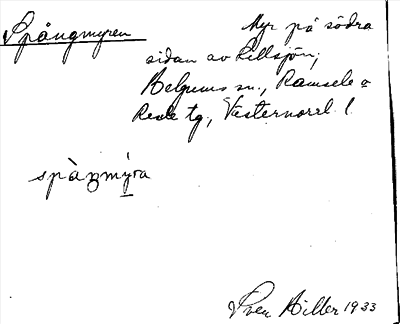 Spångmyren
Myr på södra
sidan av Lillsjön;
Bodums sn., Ramsele o
Resele tg., Västernorrl. l.
spàŋmýra
Sven Hiller 1933